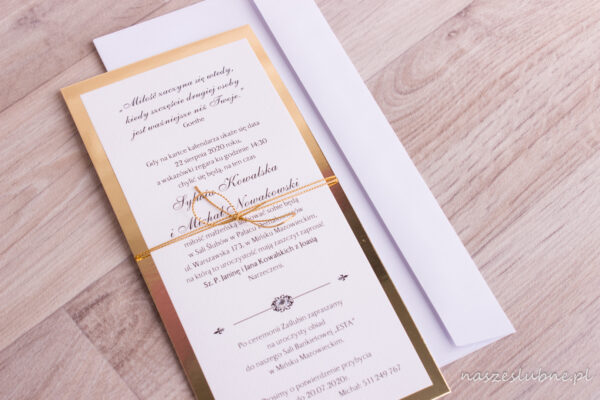 „Miłość zaczyna się wtedy,
kiedy szczęście drugiej osoby
jest ważniejsze niż Twoje."
Goethe
Gdy na kartce kalendarza ukaże się data
22 sierpnia 2020 roku,
a wskazówki zegara ku godzinie 14:30
chylić się będą, na ten czas
Sylwia Kowalska
i Michał Nowakowski
miłość małżeńską ślubować sobie będą
w Sali Ślubów w Pałacu
ul. Warszawska 173, w Mińsku Mazowieckim,
na którą to uroczystość mają zaszczyt zaprosić
Sz. P. Janinę i Jana Kowalskich z Joasią
Narzeczeni.
Po ceremonii Zaślubin zapraszamy
na uroczysty obiad
do naszego Sali Bankietowej „ESTA"
w Mińsku Mazowieckim.
Prosimy o potwierdzenie przybycia
do 20.07.2020r.
Michał 531 249 767
naszeslubne.pl